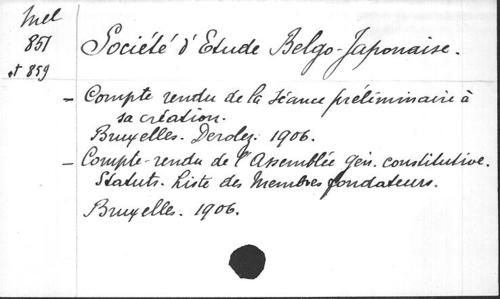 Mel
851
et 859
Société d'Etude Belgo-Japonaise.
- Compte rendu de la Séance préliminaire à
sa création.
Bruxelles. Derolez. 1906.
- Compte-rendu de l'Assemblée gén. constitutive.
Statuts. Liste des Membres fondateurs.
Bruxelles. 1906.